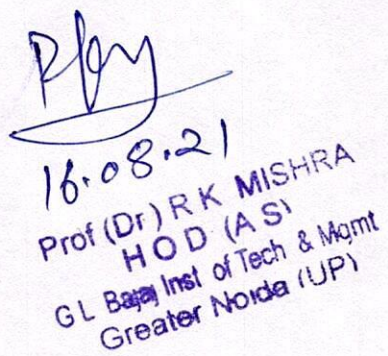 16.08.21
Prof (Dr) R K MISHRA
HOD (AS)
GL Bajaj Inst of Tech & Mgmt
Greater Noida (UP)